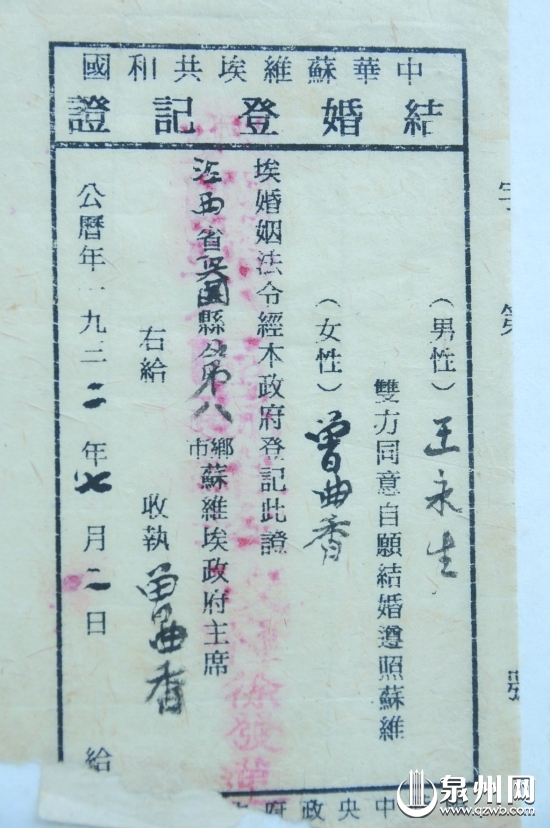 中華蘇維埃共和國
結婚登記證
字第
號
(男性)王永生
雙方同意自願結婚遵照蘇維
(女性)曾曲香
埃婚姻法令經本政府登記此證
江西省興國縣 第八 鄉市 蘇維埃政府主席
右給 收執 曾曲香
公曆年一九三二年七月二日 給
中央政府
泉州网
www.qzwb.com